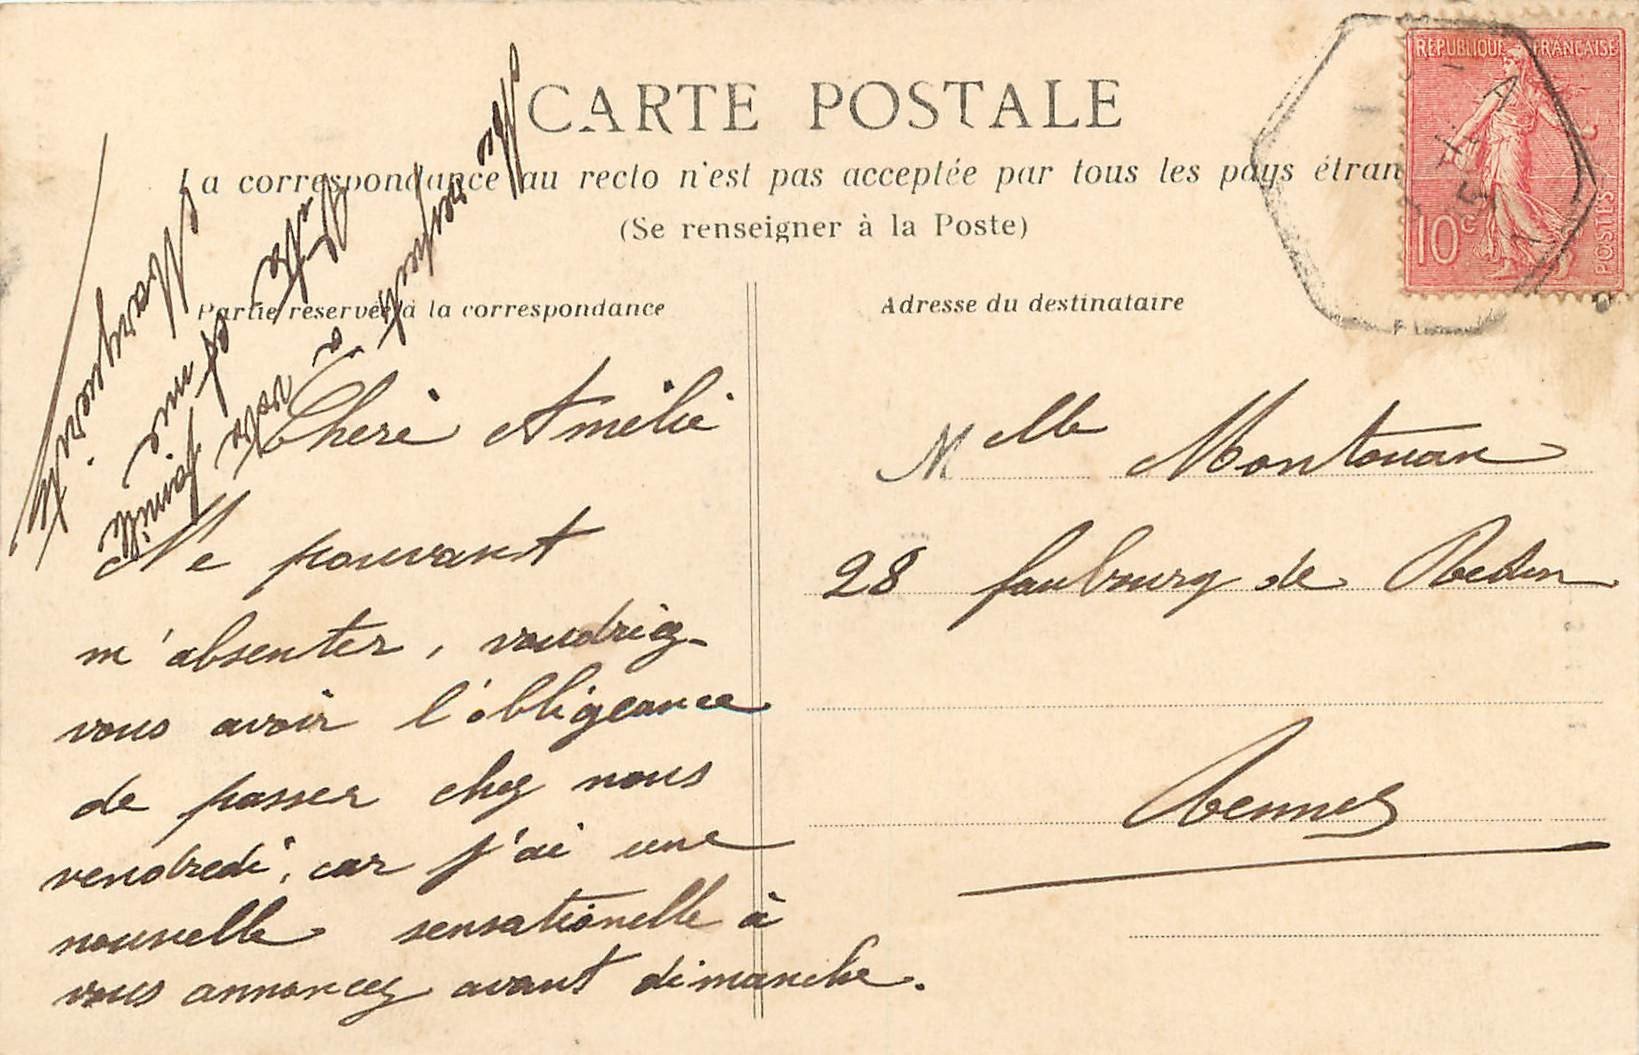 CARTE POSTALE
La correspondance au recto n'est pas acceptée par tous les pays étran
(Se renseigner à la Poste)
Partie réservée à la correspondance
Adresse du destinataire
RÉPUBLIQUE FRANÇAISE
10c
POSTES
Chère Amélie
Ne pouvant
m'absenter, voudriez-
vous avoir l'obligeance
de passer chez nous
vendredi, car j'ai une
nouvelle sensationelle à
vous annoncez avant dimanche.
à votre
famille
Marguerite
Melle Montouan
28 faubourg de Redon
Rennes